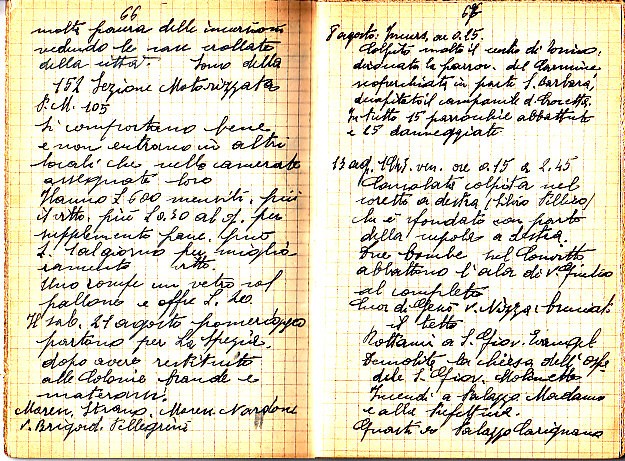 66
molta paura delle incursioni
vedendo le case crollate
della città. Sono della
152 Sezione Motorizzata
P.M. 105
Si comportano bene
e non entrano in altri
locali che nelle camerate
assegnate loro
Hanno £ 600 mensili, più
il vitto, più £ 0.30 al g. per
supplemento pane, più
£. 1 al giorno per miglio
ramento vitto.
Uno rompe un vetro col
pallone e offre £. 20
Il sab. 21 agosto pomeriggio
partono per La Spezia,
dopo avere restituito
alle Colonie brande e
materassi.
Moren, Strano, Moren Nardone
V. Brigad. Pellegrini
67
8 agosto. Incurs. ore 0.15.
Colpito molto il centro di Torino,
distrutta la parroc. del Carmine
scoperchiata in parte S. Barbara,
decapitato il campanile di Crocetta.
In tutto 15 parrocchie abbattute
e 25 danneggiate
13 ag. 1943. ven. ore 0.15 a 2.45
Consolata colpita nel
coretto a destra (Silvio Pellico)
che è sfondato con parte
della cupola a destra.
Due bombe nel Convitto
abbattono l'ala di v. Giulio
al completo
Suor di Gesù v. Nizza: bruciato
il tetto
Rottami a S. Giov. Evangel.
Demolite la chiesa dell'Ospe
dale S. Giov. Molinette
Incendi a Palazzo Madama
e alla Prefettura.
Guasti a Palazzo Carignano